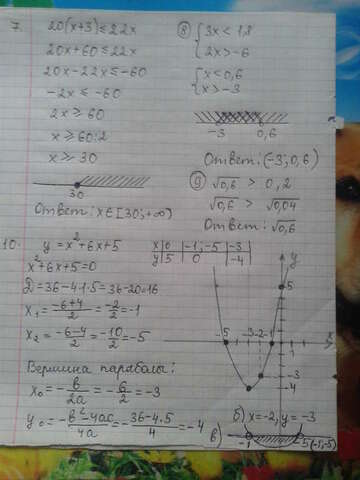 7. 20(x+3)≤22x
20x+60≤22x
20x-22x≤-60
-2x≤-60
2x≥60
x≥60:2
x≥30
30
Ответ: x∈[30;+∞)
8 {3x<1,8
2x>-6
{x<0,6
x>-3
-3 0,6
Ответ: (-3;0,6)
9 √0,6 > 0,2
√0,6 > √0,04
Ответ: √0,6
10. y=x²+6x+5
x²+6x+5=0
D=36-4·1·5=36-20=16
x₁=(-6+4)/2=-2/2=-1
x₂=(-6-4)/2=-10/2=-5
Вершина параболы:
x₀=-в/2a=-6/2=-3
y₀=-(в²-4ac)/4a=-(36-4·5)/4=-4
x 0 -1;-5 -3
y 5 0 -4
y
5
-5 -3 -2 -1 1 x
1
-3
-4
б) x=-2, y=-3
в) -1 -5 (-1;-5)